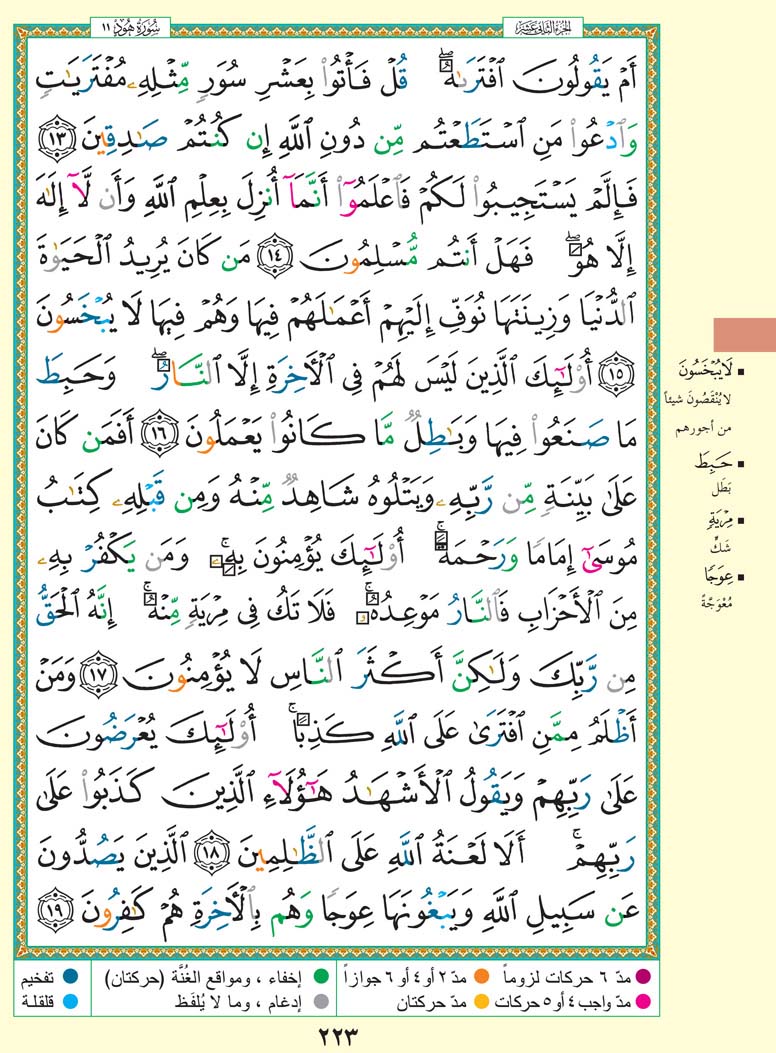 الجزء الثاني عشر
سُورَةُ هُودٍ ١١
أَمْ يَقُولُونَ ٱفْتَرَىٰهُ ۖ قُلْ فَأْتُوا۟ بِعَشْرِ سُوَرٍ مِّثْلِهِۦ مُفْتَرَيَـٰتٍ
وَٱدْعُوا۟ مَنِ ٱسْتَطَعْتُم مِّن دُونِ ٱللَّهِ إِن كُنتُمْ صَـٰدِقِينَ ١٣
فَإِلَّمْ يَسْتَجِيبُوا۟ لَكُمْ فَٱعْلَمُوٓا۟ أَنَّمَآ أُنزِلَ بِعِلْمِ ٱللَّهِ وَأَن لَّآ إِلَـٰهَ
إِلَّا هُوَ ۖ فَهَلْ أَنتُم مُّسْلِمُونَ ١٤ مَن كَانَ يُرِيدُ ٱلْحَيَوٰةَ
ٱلدُّنْيَا وَزِينَتَهَا نُوَفِّ إِلَيْهِمْ أَعْمَـٰلَهُمْ فِيهَا وَهُمْ فِيهَا لَا يُبْخَسُونَ
١٥ أُو۟لَـٰٓئِكَ ٱلَّذِينَ لَيْسَ لَهُمْ فِى ٱلْـَٔاخِرَةِ إِلَّا ٱلنَّارُ ۖ وَحَبِطَ
مَا صَنَعُوا۟ فِيهَا وَبَـٰطِلٌ مَّا كَانُوا۟ يَعْمَلُونَ ١٦ أَفَمَن كَانَ
عَلَىٰ بَيِّنَةٍ مِّن رَّبِّهِۦ وَيَتْلُوهُ شَاهِدٌ مِّنْهُ وَمِن قَبْلِهِۦ كِتَـٰبُ
مُوسَىٰٓ إِمَامًا وَرَحْمَةً ۚ أُو۟لَـٰٓئِكَ يُؤْمِنُونَ بِهِۦ ۚ وَمَن يَكْفُرْ بِهِۦ
مِنَ ٱلْأَحْزَابِ فَٱلنَّارُ مَوْعِدُهُۥ ۚ فَلَا تَكُ فِى مِرْيَةٍ مِّنْهُ ۚ إِنَّهُ ٱلْحَقُّ
مِن رَّبِّكَ وَلَـٰكِنَّ أَكْثَرَ ٱلنَّاسِ لَا يُؤْمِنُونَ ١٧ وَمَنْ
أَظْلَمُ مِمَّنِ ٱفْتَرَىٰ عَلَى ٱللَّهِ كَذِبًا ۚ أُو۟لَـٰٓئِكَ يُعْرَضُونَ
عَلَىٰ رَبِّهِمْ وَيَقُولُ ٱلْأَشْهَـٰدُ هَـٰٓؤُلَآءِ ٱلَّذِينَ كَذَبُوا۟ عَلَىٰ
رَبِّهِمْ ۚ أَلَا لَعْنَةُ ٱللَّهِ عَلَى ٱلظَّـٰلِمِينَ ١٨ ٱلَّذِينَ يَصُدُّونَ
عَن سَبِيلِ ٱللَّهِ وَيَبْغُونَهَا عِوَجًا وَهُم بِٱلْـَٔاخِرَةِ هُمْ كَـٰفِرُونَ ١٩
لَا يُبْخَسُونَ
لا يُنْقَصُونَ شيئاً
من أجورهم
حَبِطَ
بَطَل
مِرْيَةٍ
شَكٍّ
عِوَجًا
مُعْوَجَّةً
مدّ ٦ حركات لزوماً مدّ ٢ أو ٤ أو ٦ جوازاً إخفاء ، ومواقع الغُنَّة (حركتان) تفخيم
مدّ واجب ٤ أو ٥ حركات مدّ حركتان إدغام ، وما لا يُلفَظ قلقلة
٢٢٣